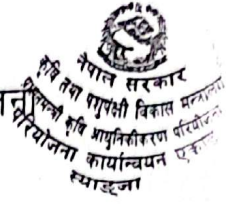 नेपाल सरकार
कृषि तथा पशुपंक्षी विकास मन्त्रालय
प्रधानमन्त्री कृषि आधुनिकीकरण परियोजना
परियोजना कार्यान्वयन एकाइ
स्याङ्जा